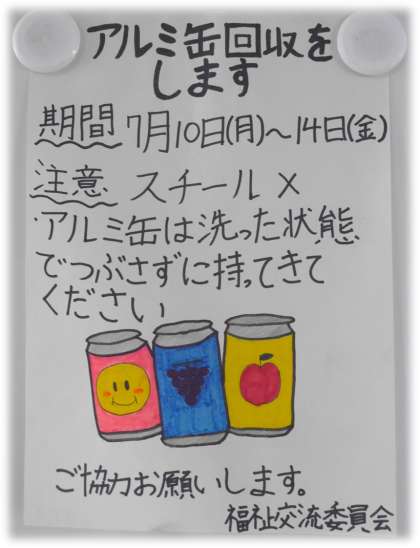 アルミ缶回収を
します
期間 7月10日(月)〜14日(金)
注意 スチール×
・アルミ缶は洗った状態
でつぶさずに持ってきて
ください
ご協力お願いします。
福祉交流委員会